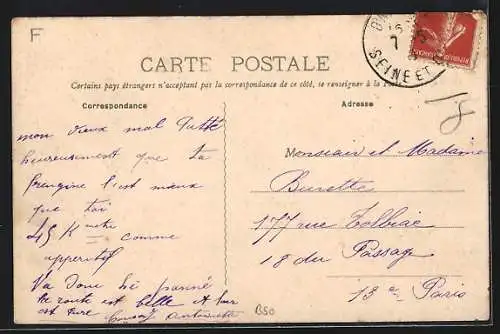 F
CARTE POSTALE
Certains pays étrangers n'acceptent pas la correspondance de ce côté, se renseigner à la Poste
Correspondance
Adresse
SEINE ET
18
mon vieux mal
heureusement que ta
frengine l'est mieux
que toi
45 K
comme
apperitif
Va donc hé panné
la route est belle et
est pure Antoinette
B50
Monsieur et Madame
Burette
177 rue Tolbiac
18 du Passage
13e Paris